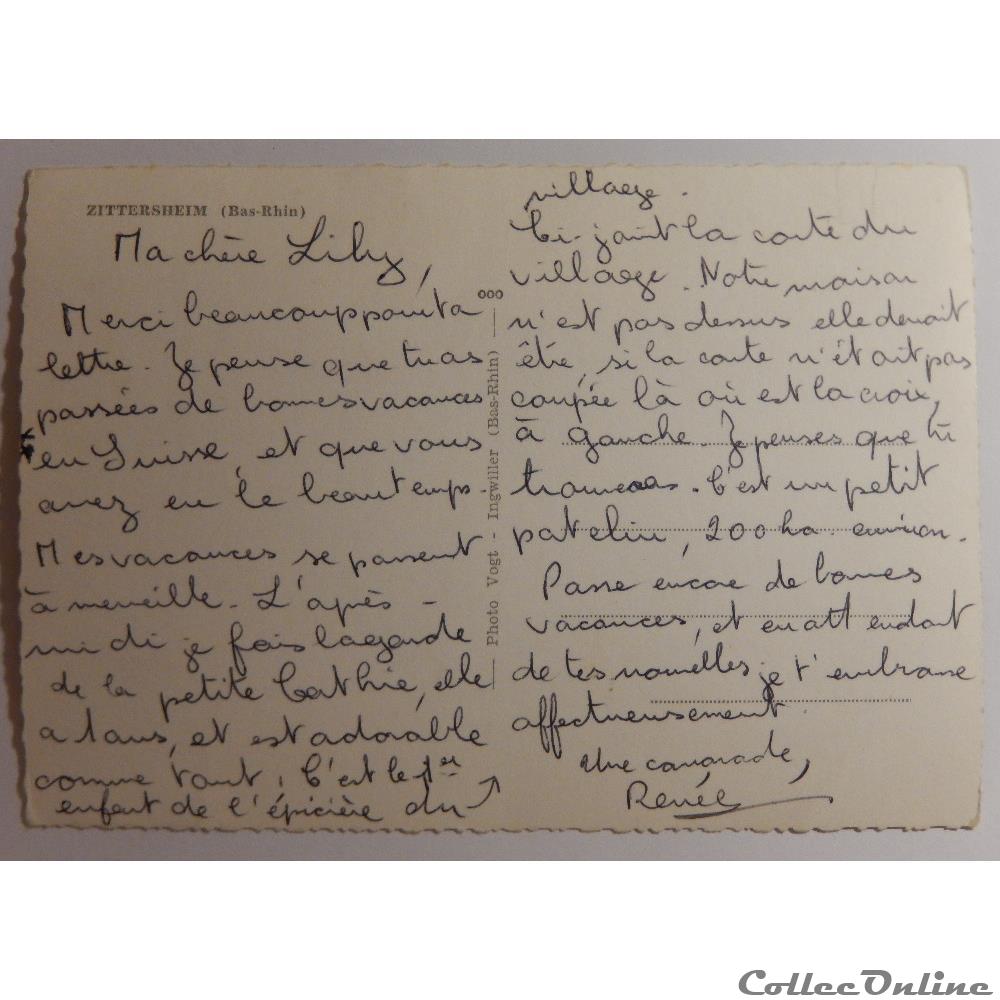 ZITTERSHEIM (Bas-Rhin)
Ma chère Lily,
Merci beaucoup pour ta
lettre. Je pense que tu as
passées de bonnes vacances
en Suisse, et que vous
avez eu le beau temps.
Mes vacances se passent
à merveille. L'après-
midi je fais la garde
de la petite Cathie, elle
a 1 ans, et est adorable
comme tout. C'est le 1er
enfant de l'épicière du
village.
Ci-joint la carte du
village. Notre maison
n'est pas dessus elle devait
être, si la carte n'était pas
coupée là où est la croix,
à gauche. Je penses que tu
trouveras. C'est un petit
patelin, 200 ha. environ.
Passe encore de bonnes
vacances, et en attendant
de tes nouvelles je t'embrasse
affectueusement.
Une camarade,
Renée
Photo Vogt - Ingwiller (Bas-Rhin)
CollecOnline